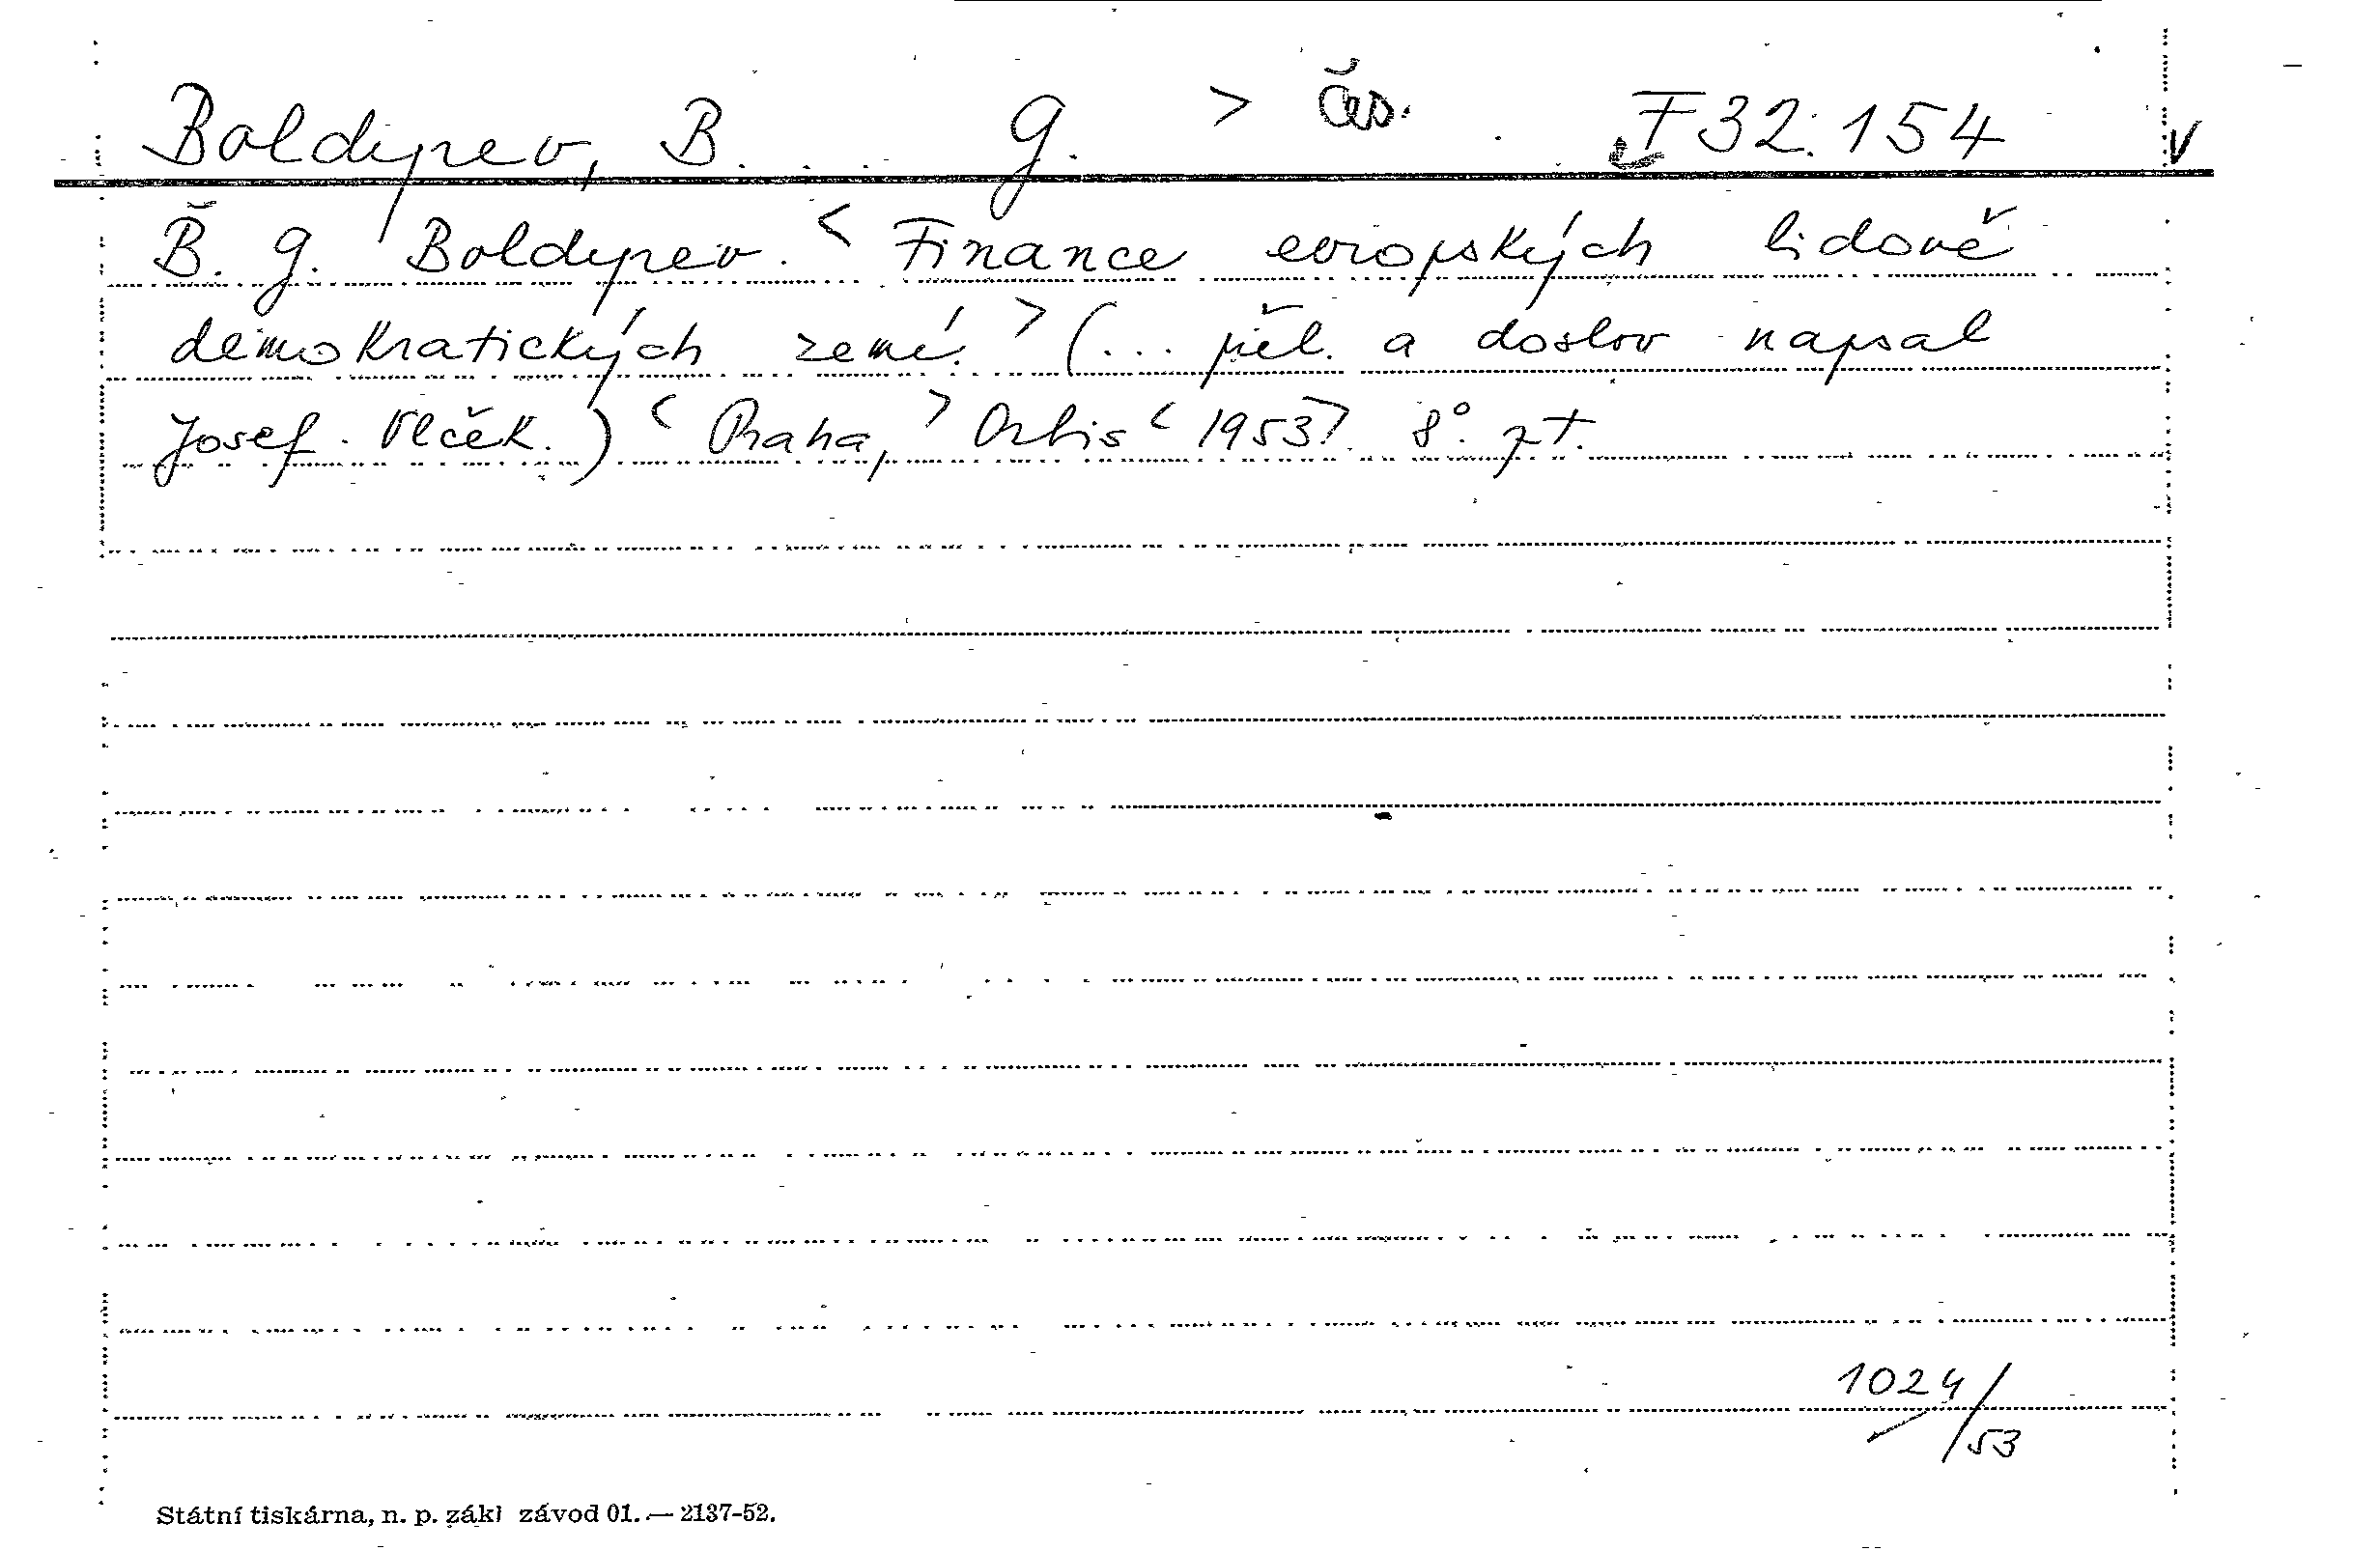 Boldyrev, B. G. > Čes. F 32.154 v
B. G. Boldyrev. < Finance evropských lidově
demokratických zemí. > (... přel. a doslov napsal
Josef Vlček.) < Praha, > Orbis < 1953 > 8°. zt.
1024/53
Státní tiskárna, n. p. zákl závod 01. — 2137-52.